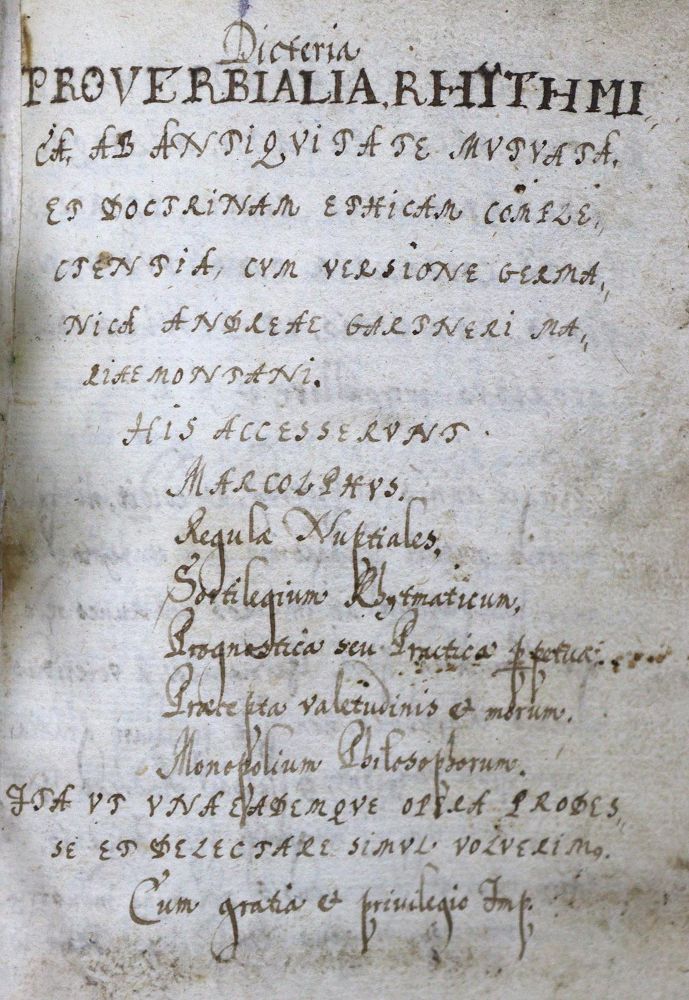 Dicteria
PROVERBIALIA, RHYTHMI„
CA, AB ANTIQVITATE MVTVATA,
ET DOCTRINAM ETHICAM COMPLE„
CTENTIA, CVM VERSIONE GERMA„
NICA ANDREAE GARTNERI MA„
RIAEMONTANI.
HIS ACCESSERVNT.
MARCOLPHVS.
Regulæ Nuptiales,
Sortilegium Rhytmaticum,
Prognostica seu Practica ꝑpetua.
Præcepta valetudinis et morum.
Monopolium Philosophorum.
ITA VT VNA EADEMQVE OPERA PRODES„
SE ET DELECTARE SIMVL VOLVERIMꝰ.
Cum gratia et privilegio Imp.